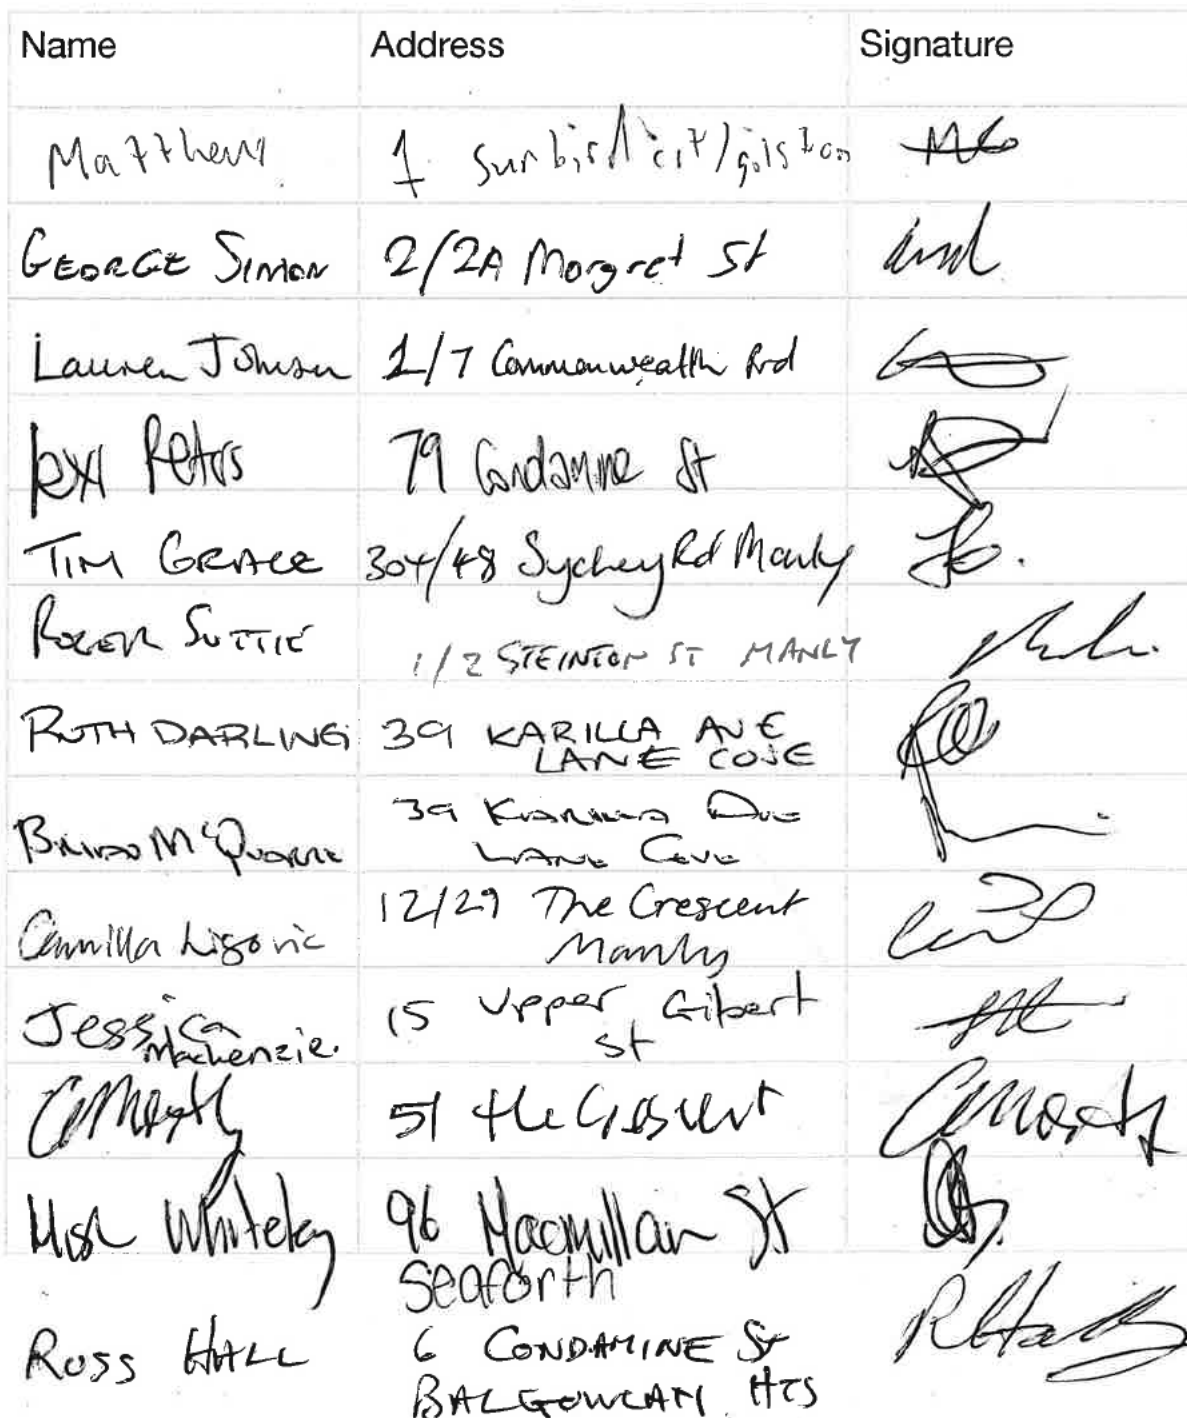 Name Address Signature
Matthew 1
GEORGE SIMON 2/2A Morgret St
Lauren Johnson 1/7 Commonwealth Rd
Peters 79 Condamine St
TIM GRACE 304/48 Sydney Rd Manly
ROGER SUTTIE 1/2 STEINTON ST MANLY
RUTH DARLING 39 KARILLA AVE
LANE COVE
39 KARILLA AVE
LANE COVE
Camilla Ligovic 12/29 The Crescent
Manly
Jessica 15 Upper Gilbert
Mackenzie. St
51 the Crescent
Whiteley 96 Macmillan St
Seaforth
ROSS HALL 6 CONDAMINE St
BALGOWLAH HTS